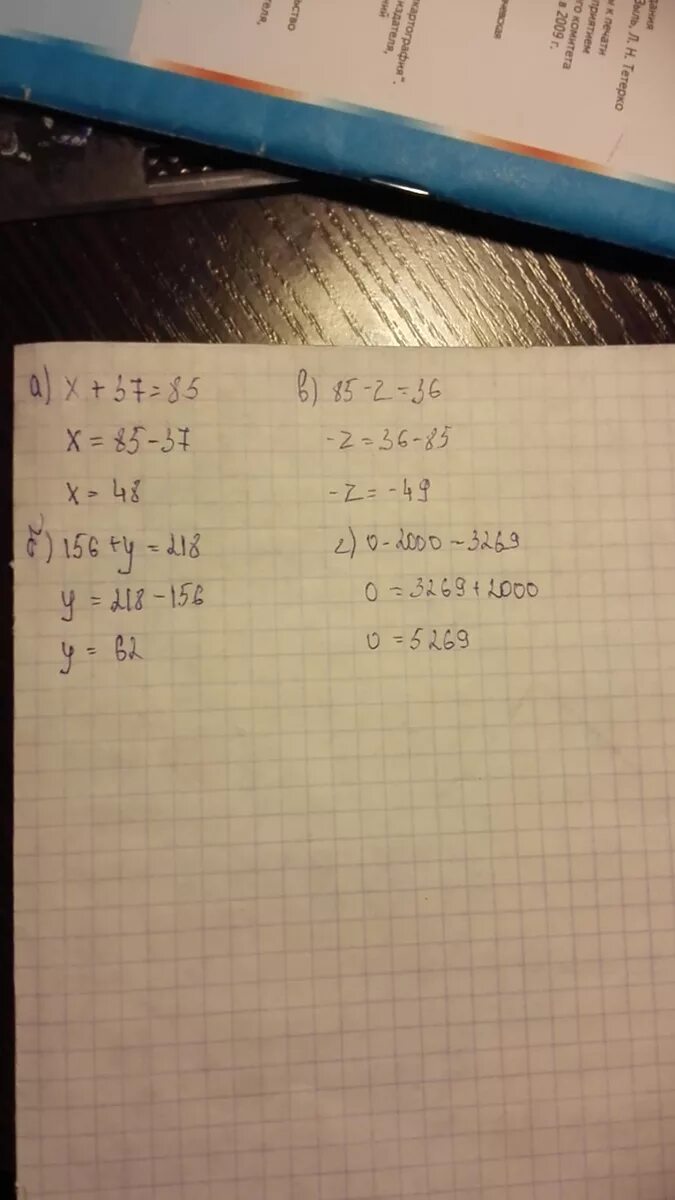 дания
Зыль, Л. Н. Тетерко
м к печати
приятием
го комитета
в 2009 г.
картография"
издателя,
ний
рство
теля,
а) x + 37 = 85
x = 85 - 37
x = 48
б) 156 + y = 218
y = 218 - 156
y = 62
в) 85 - z = 36
-z = 36 - 85
-z = -49
г) 0 - 2000 - 3269
0 = 3269 + 2000
0 = 5269